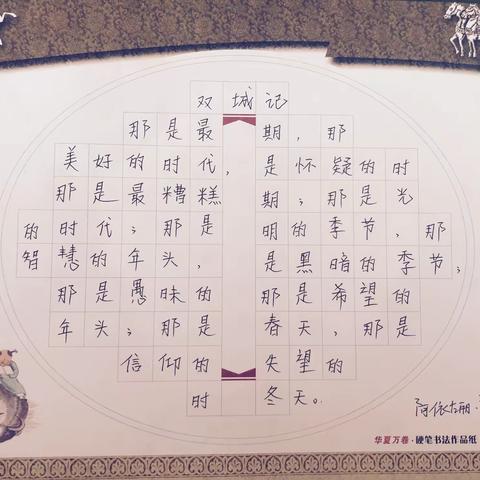 双城记
那是最
美好的时代，
那是最糟糕
的时代；那是
智慧的年头，
那是愚昧的
年头；那是
信仰的
时
期，那
是怀疑的时
期；那是光
明的季节，那
是黑暗的季节；
那是希望的
春天，那是
失望的
冬天。
华夏万卷·硬笔书法作品纸